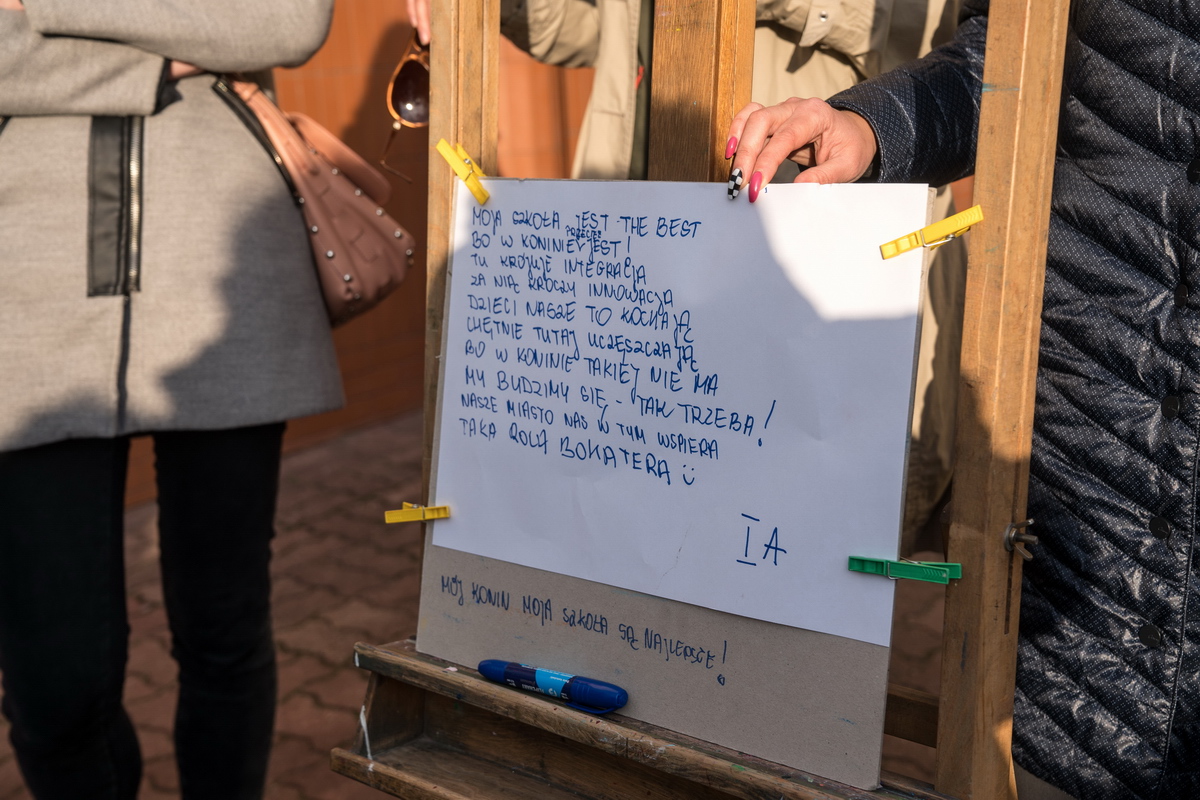 MOJA SZKOŁA JEST THE BEST
BO W KONINIE PRZECIEŻ JEST!
TU KRÓLUJE INTEGRACJA
ZA NIĄ KROCZY INNOWACJA
DZIECI NASZE TO KOCHAJĄ
CHĘTNIE TUTAJ UCZĘSZCZAJĄ
BO W KONINIE TAKIEJ NIE MA
MY BUDZIMY SIĘ - TAK TRZEBA!
NASZE MIASTO NAS W TYM WSPIERA
TAKA ROLA BOHATERA
I A
MÓJ KONIN MOJA SZKOŁA SĄ NAJLEPSZE!